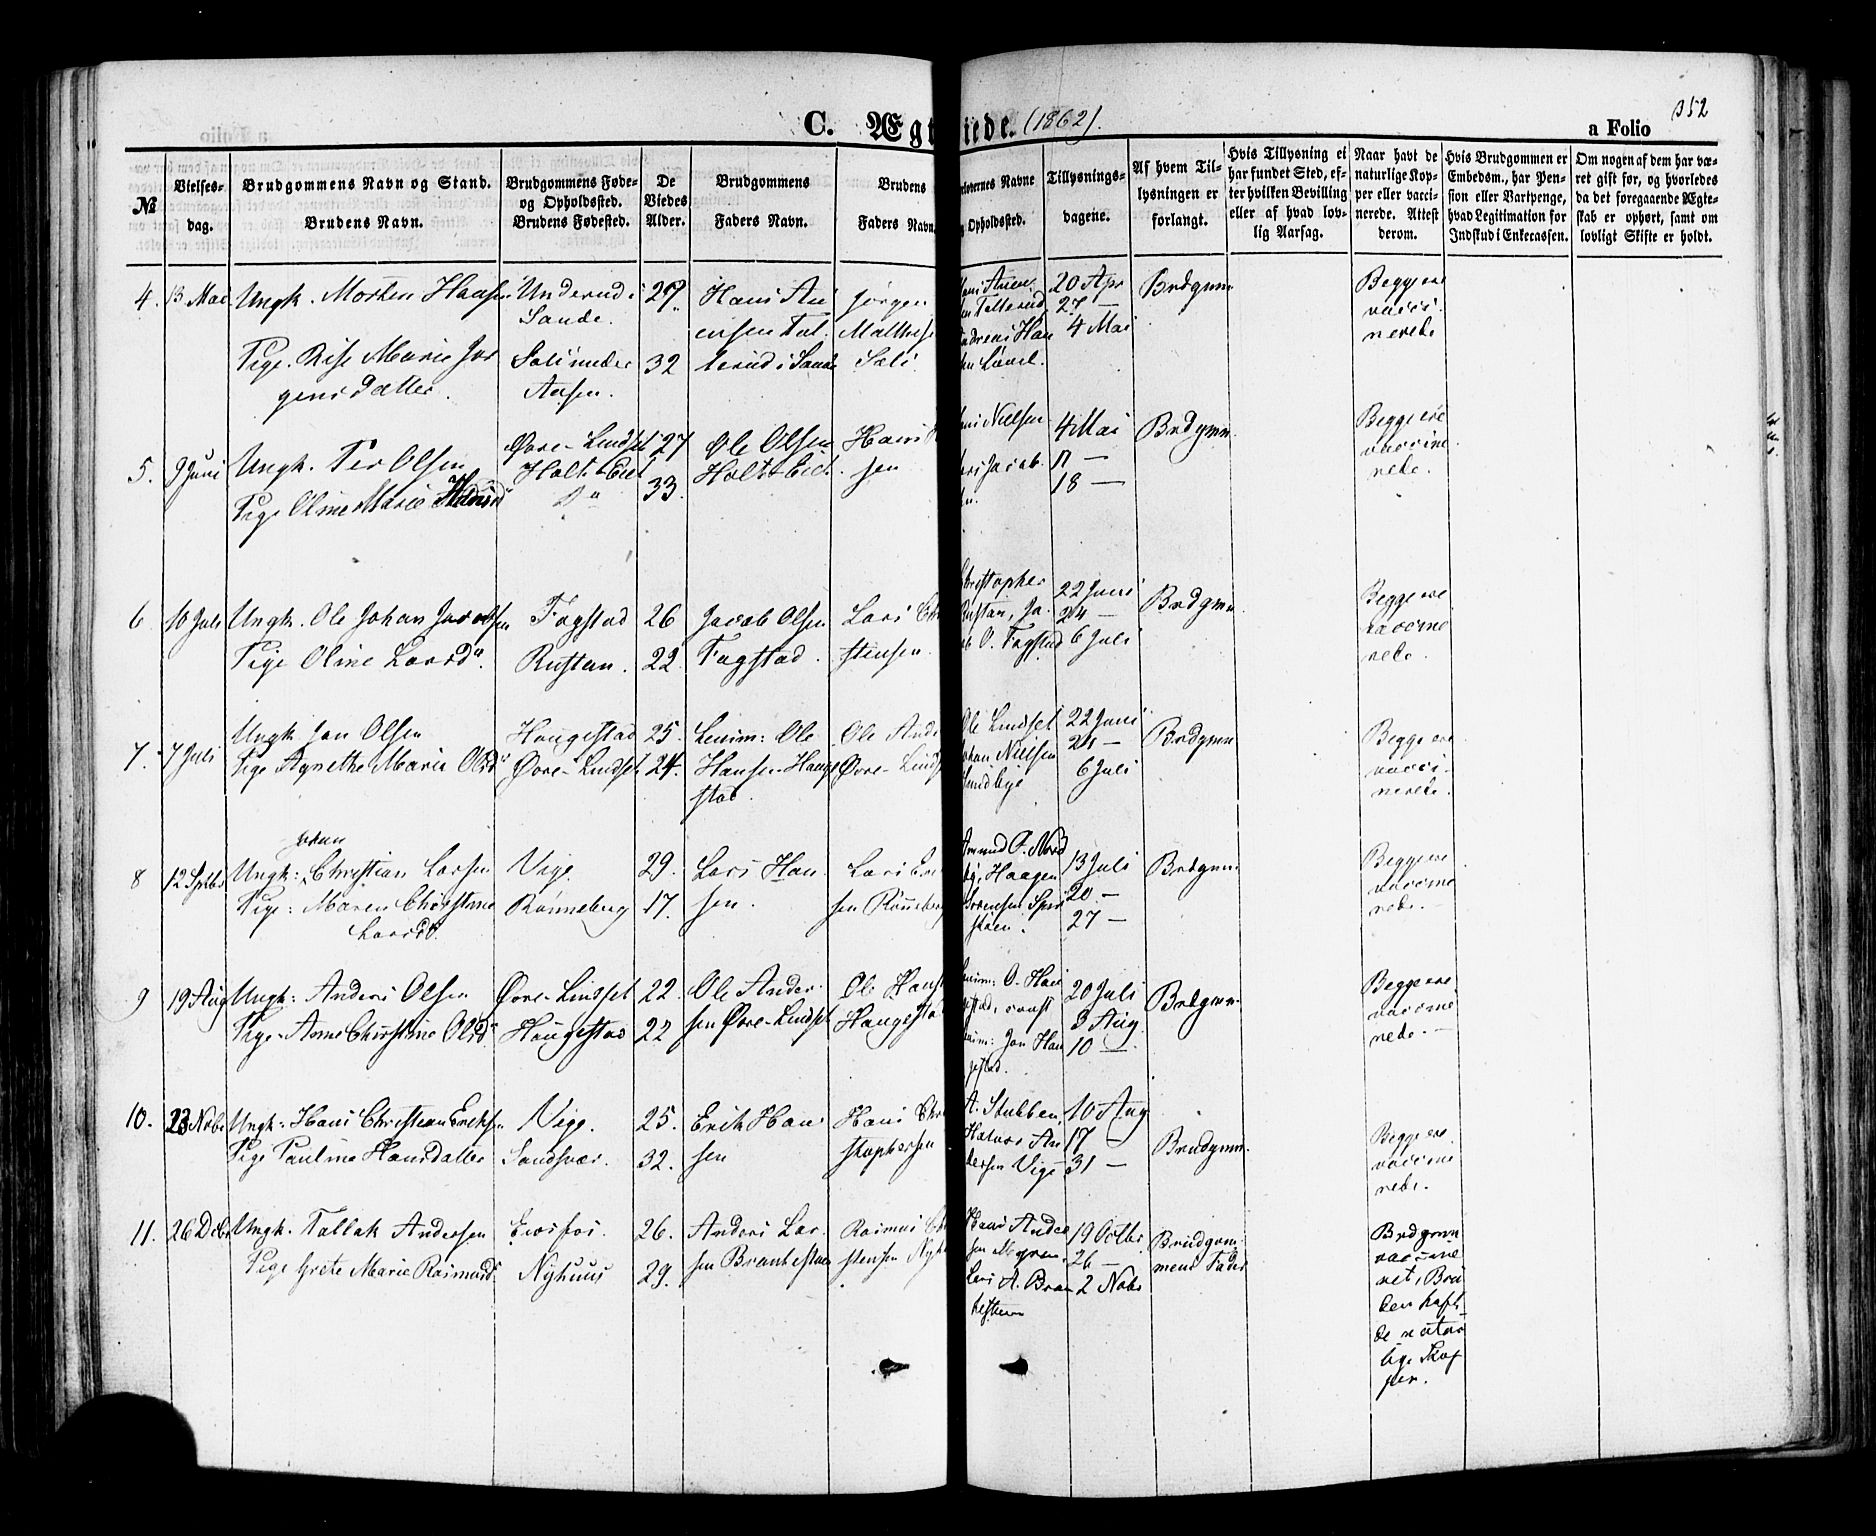 C. Ægt
iede. (1862).
a Folio
352
№
Vielses-
dag.
Brudgommens Navn og Stand.
Brudens Navn.
Brudgommens Føde-
og Opholdssted.
Brudens Fødested.
De
Viedes
Alder.
Brudgommens
Faders Navn.
Brudens
Faders Navn.
orlovernes Navne
g Opholdssted.
Tillysnings-
dagene.
Af hvem Til-
lysningen er
forlangt.
Hvis Tillysning ei
har fundet Sted, ef-
ter hvilken Bevilling
eller af hvad lov-
lig Aarsag.
Naar havt de
naturlige Kop-
per eller vacci-
nerede. Attest
derom.
Hvis Brudgommen er
Embedsm., har Pen-
sion eller Vartpenge,
hvad Legitimation for
Indskud i Enkecassen.
Om nogen af dem har væ-
ret gift før, og hvorledes
da det foregaaende Ægte-
skab er ophørt, samt om
lovligt Skifte er holdt.
4. 13 Mai Ungk. Morten Hansen
Pige. Rise Marie Jør
gensdatter.
Underud i
Sande.
Soli under
Aasen.
29
32
Hans An
ensen Tol
terud i Sande
Jørgen
Mathise
Soli
20 Apr
27 —
4 Mai
Brdgmn
Begge ere
vacci
nerede
5. 9 Juni Ungk. Per Olsen
Pige Oline Marie Hansd
Øvre-Lindset
Holt-Eiet
D"
27
33
Ole Olsen
Holt-Eiet.
Hans
sen
ns Nielsen
ers Jacob
en.
4 Mai
11 —
18 —
Brdgmn.
Begge ere
vaccine
rede.
6 10 Juli Ungk. Ole Johan Jacobsen
Pige Oline Larsd".
Fagstad
Rustan.
26
22
Jacob Olsen
Fagstad.
Lars Chr
stensen.
Christopher
Rustan, Ja
ob O. Fagstad
22 Juni
24 —
6 Juli
Brdgmn
Begge ere
vaccine
rede.
7. 7 Juli Ungk Jan Olsen
Pige Agnethe Marie Olsd"
Haugestad
Øvre-Lindset
25.
24.
Lensm: Ole
Hansen Hauge
stad.
Ole Ande
Øvre-Linds
Ole Lindset
Johan Nielsen
Sundbye
22 Juni
24 —
6 Juli
Brdgmn
Begge ere
vacci
nerede.
8 12 Septbr
Johan
Ungk: Christian Larsen
Pige: Maren Christine
Larsd.
Vige
Rønneberg
29.
17.
Lars Han
sen.
Lars Er
sen Rønneberg
Amund O. Nord
by, Haagen
Sørensen
13 Juli
20 —
27 —
Brdgmn
Begge ere
vaccine
rede.
9 19 Aug Ungk: Anders Olsen
Pige. Anne Christine Olsd"
Øvre-Lindset
Haugestad
22.
22
Ole Ander
sen Øvre-Lindset
Ole Hans
Haugesta
Lensm: O. Hau
gestad,
Lensm: Jan Hau
gestad.
20 Juli
3 Aug.
10 —
Brdgmn.
Begge ere
vaccine
rede.
10. 23 Novbr Ungk: Hans Christian Eriksen
Pige Pauline Hansdatter
Vige.
Sandsvær.
25.
32.
Erik Han
sen
Hans Chri
stophersen
A. Stubben,
Halvor An
dersen Vige
10 Aug
17
31 —
Brudgmn.
Begge ere
vaccine
rede.
11. 26 Decbr Ungk. Tallak Andersen
Pige Grete Marie Rasmusd"
Eversfos.
Nyhuus
26.
29.
Anders Lar
sen Brankestuen
Rasmus Chr
stensen Nyh
Hans Ander
sen Myren.
Lars A. Bran
kestuen
19 Octbr
26 —
2 Nobr
Brudgom
mens Fader
Brdgmn
vaccine
ret, Bru
den haft
de natur
lige Kop
per.